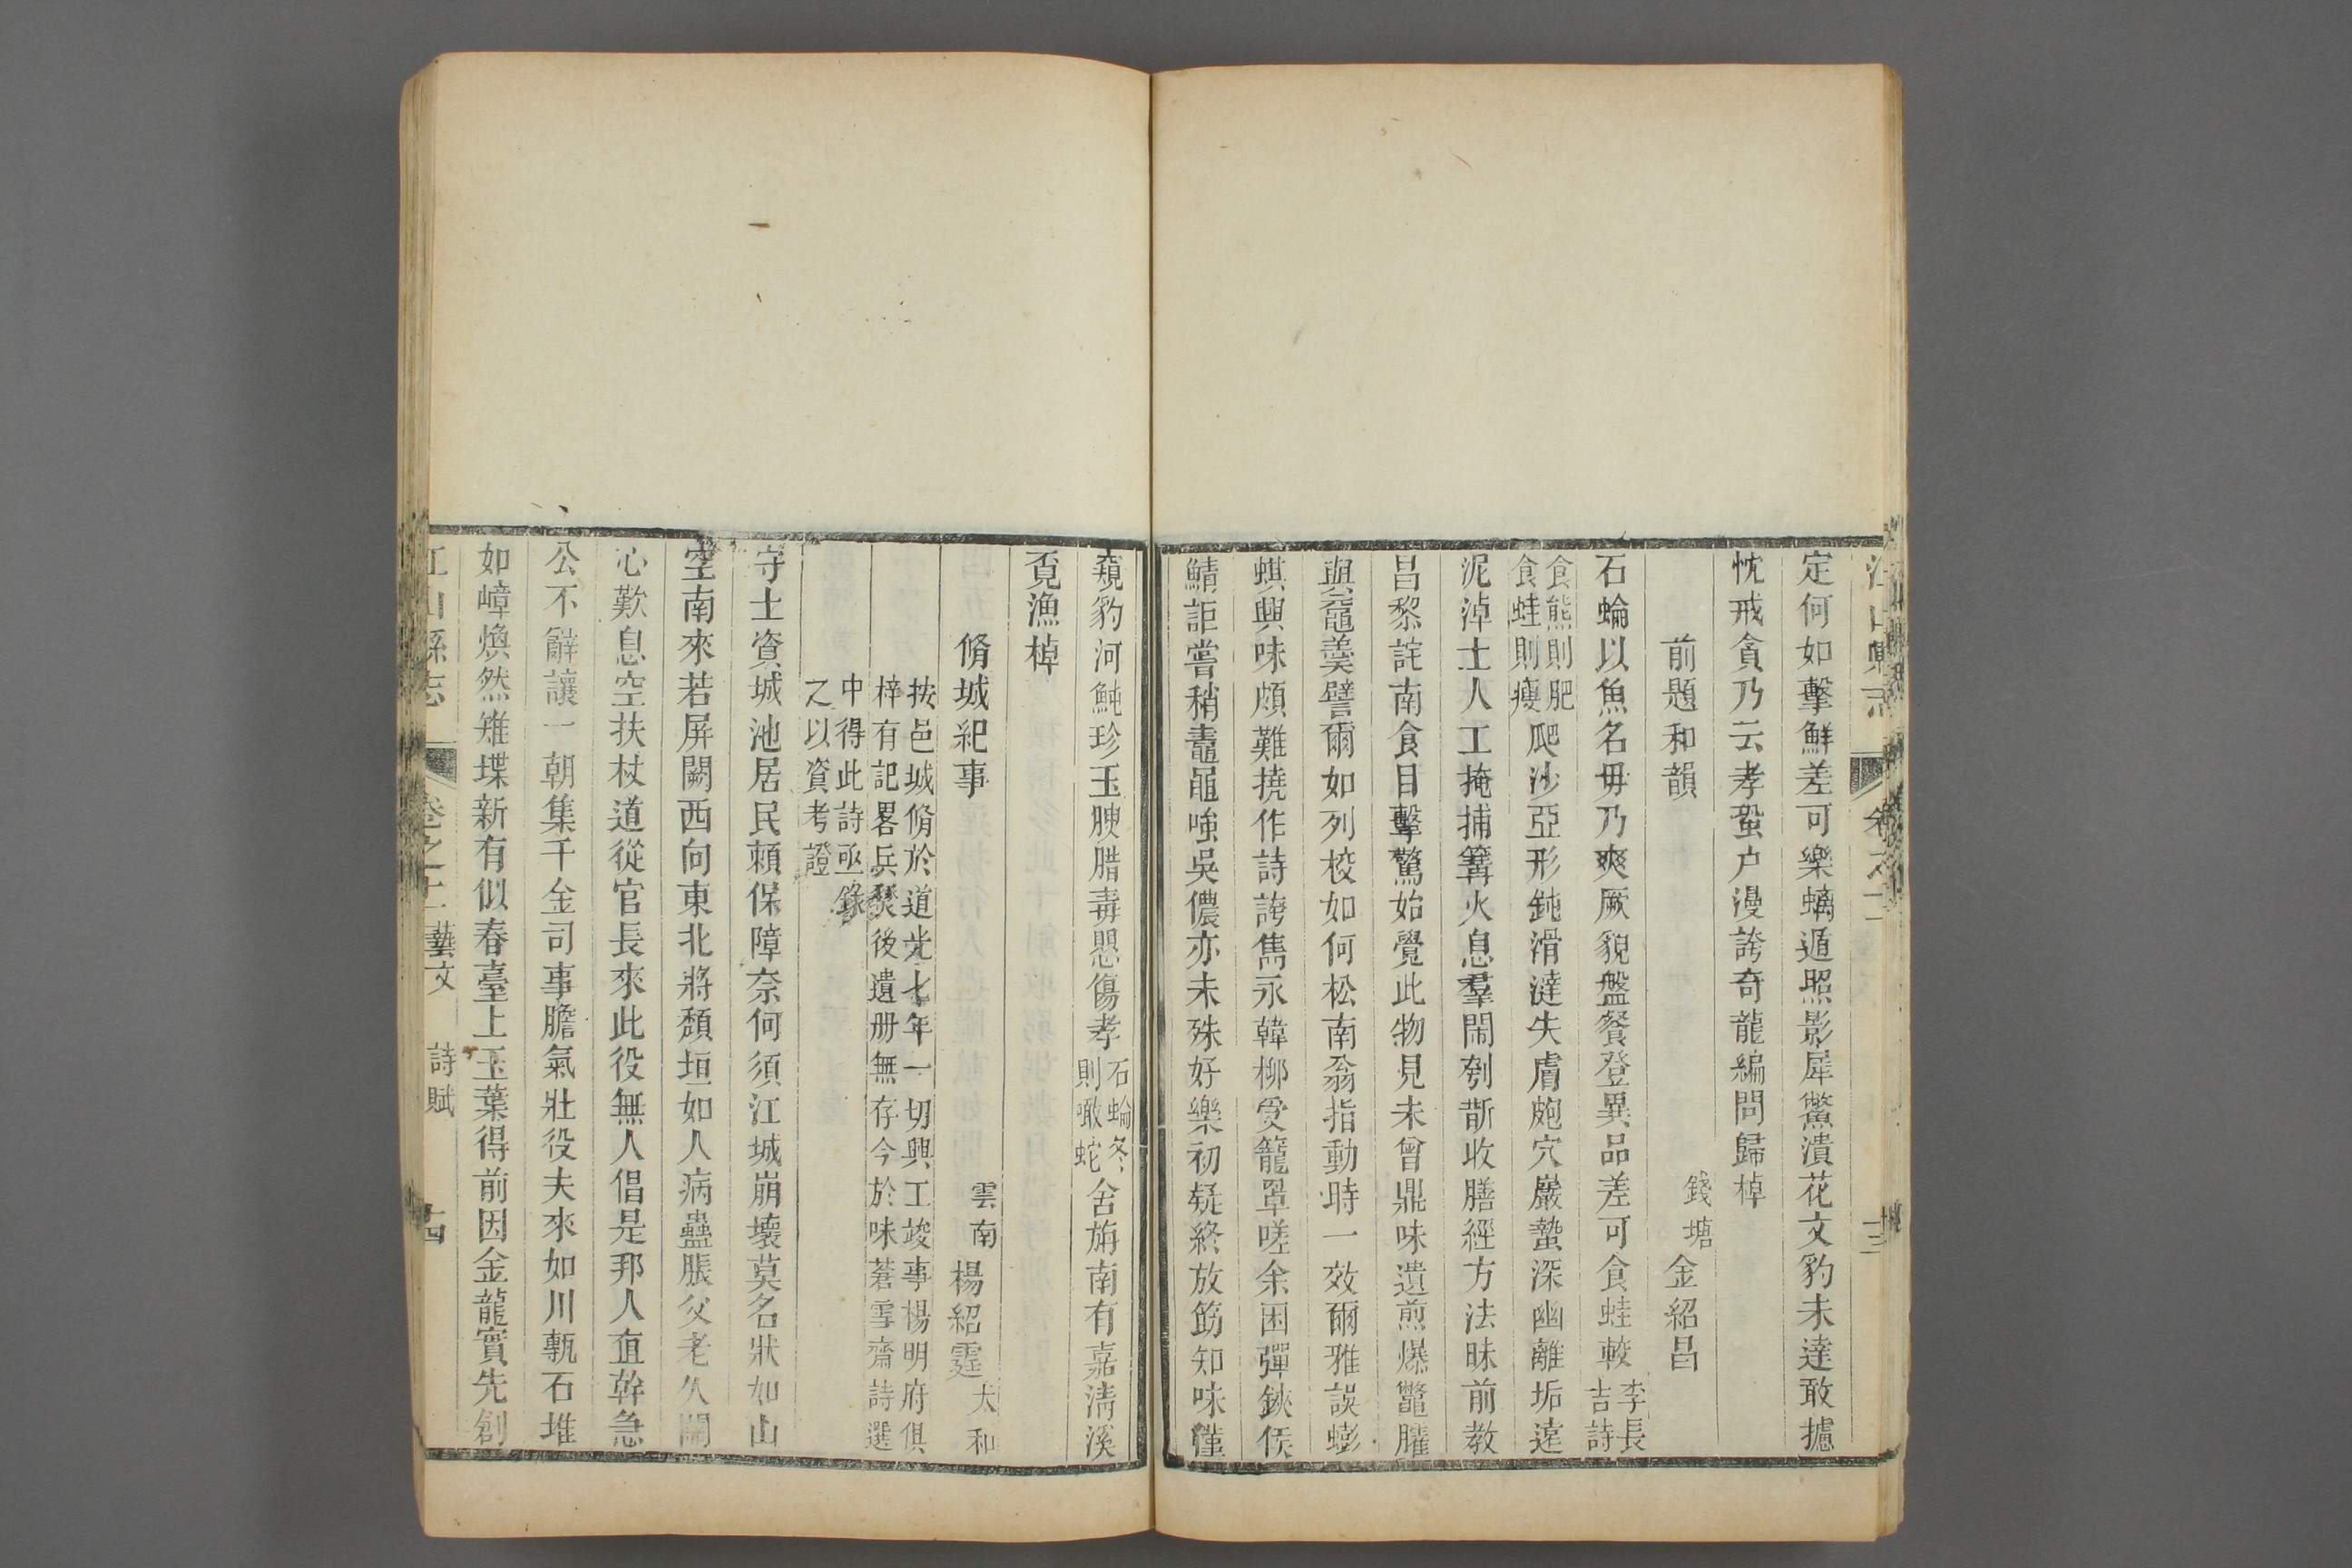 定何如擊鮮差可樂蟎遁照影犀鱉潰花文豹未達敢攄
忱戒貪乃云孝蛩户漫誇奇龍編問歸棹
前題和韻
錢塘金紹昌
石蜦以魚名毋乃爽厥貌盤餐登異品差可食蛙較李長吉詩
食熊則肥食蛙則瘦爬沙亞形鈍滑澾失膚皰穴巖蟄深幽離垢遠
泥淖土人工掩捕篝火息羣鬧刳斮收膳經方法昧前教
昌黎詫南食目擊驚始覺此物見未曾鼎味遺煎爆鼈臛
與黿羹譬爾如列校如何松南翁指動時一效爾雅誤蟛
蜞與味頗難撓作詩誇雋永韓柳受籠罩嗟余困彈鋏侯
鯖詎嘗稍鼃黽嗤吳儂亦未殊好樂初疑終放筯知味僅
窺豹河魨珍玉腴腊毒愳傷孝石蜦冬則噉蛇舍旃南有嘉淸溪
覔漁棹
脩城紀事
雲南楊紹霆太和
按邑城脩於道光七年一切興工竣事楊明府俱
梓有記畧兵燹後遺册無存今於味蒼雪齋詩選
中得此詩亟錄
之以資考證
守土資城池居民賴保障奈何須江城崩壞莫名狀如山
空南來若屏闕西向東北將頽垣如人病蠱脹父老久關
心歎息空扶杖道從官長來此役無人倡是邦人直幹急
公不辭讓一朝集千金司事膽氣壯役夫來如川甎石堆
如嶂煥然雉堞新有似春臺上玉葉得前因金龍實先創
江山縣志
卷之十一
藝文
詩賦